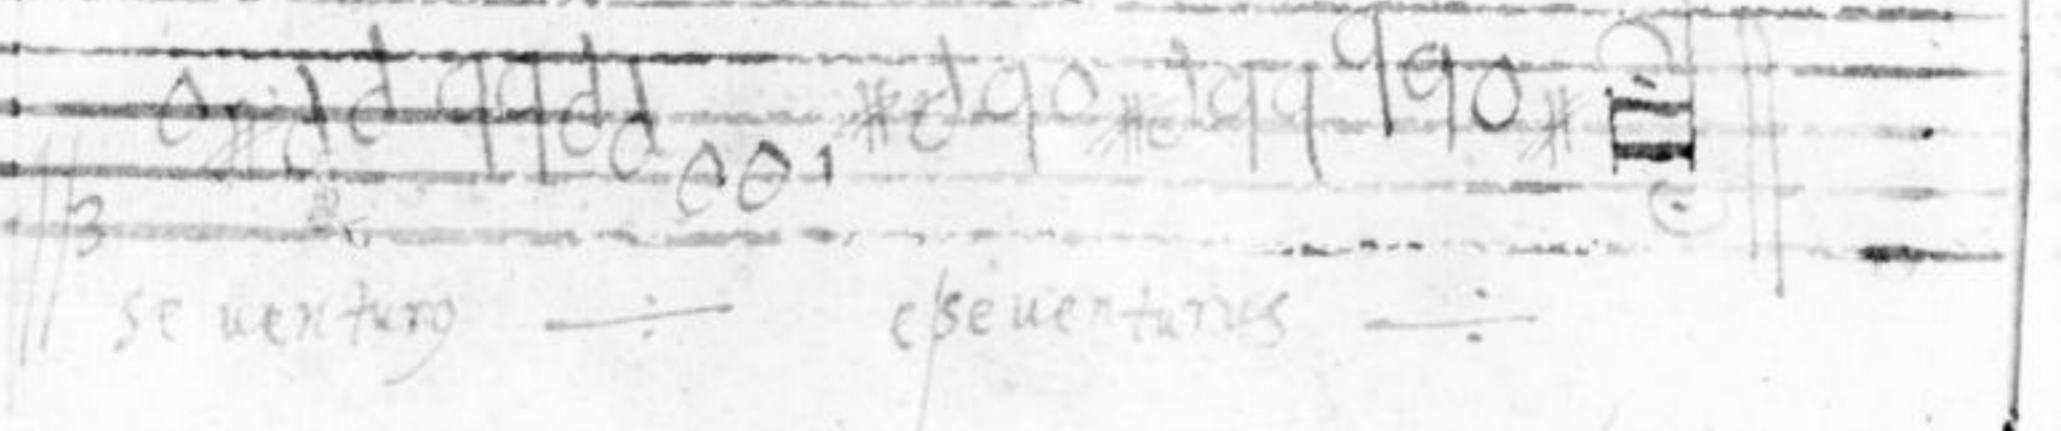 se uenturus esse uenturus